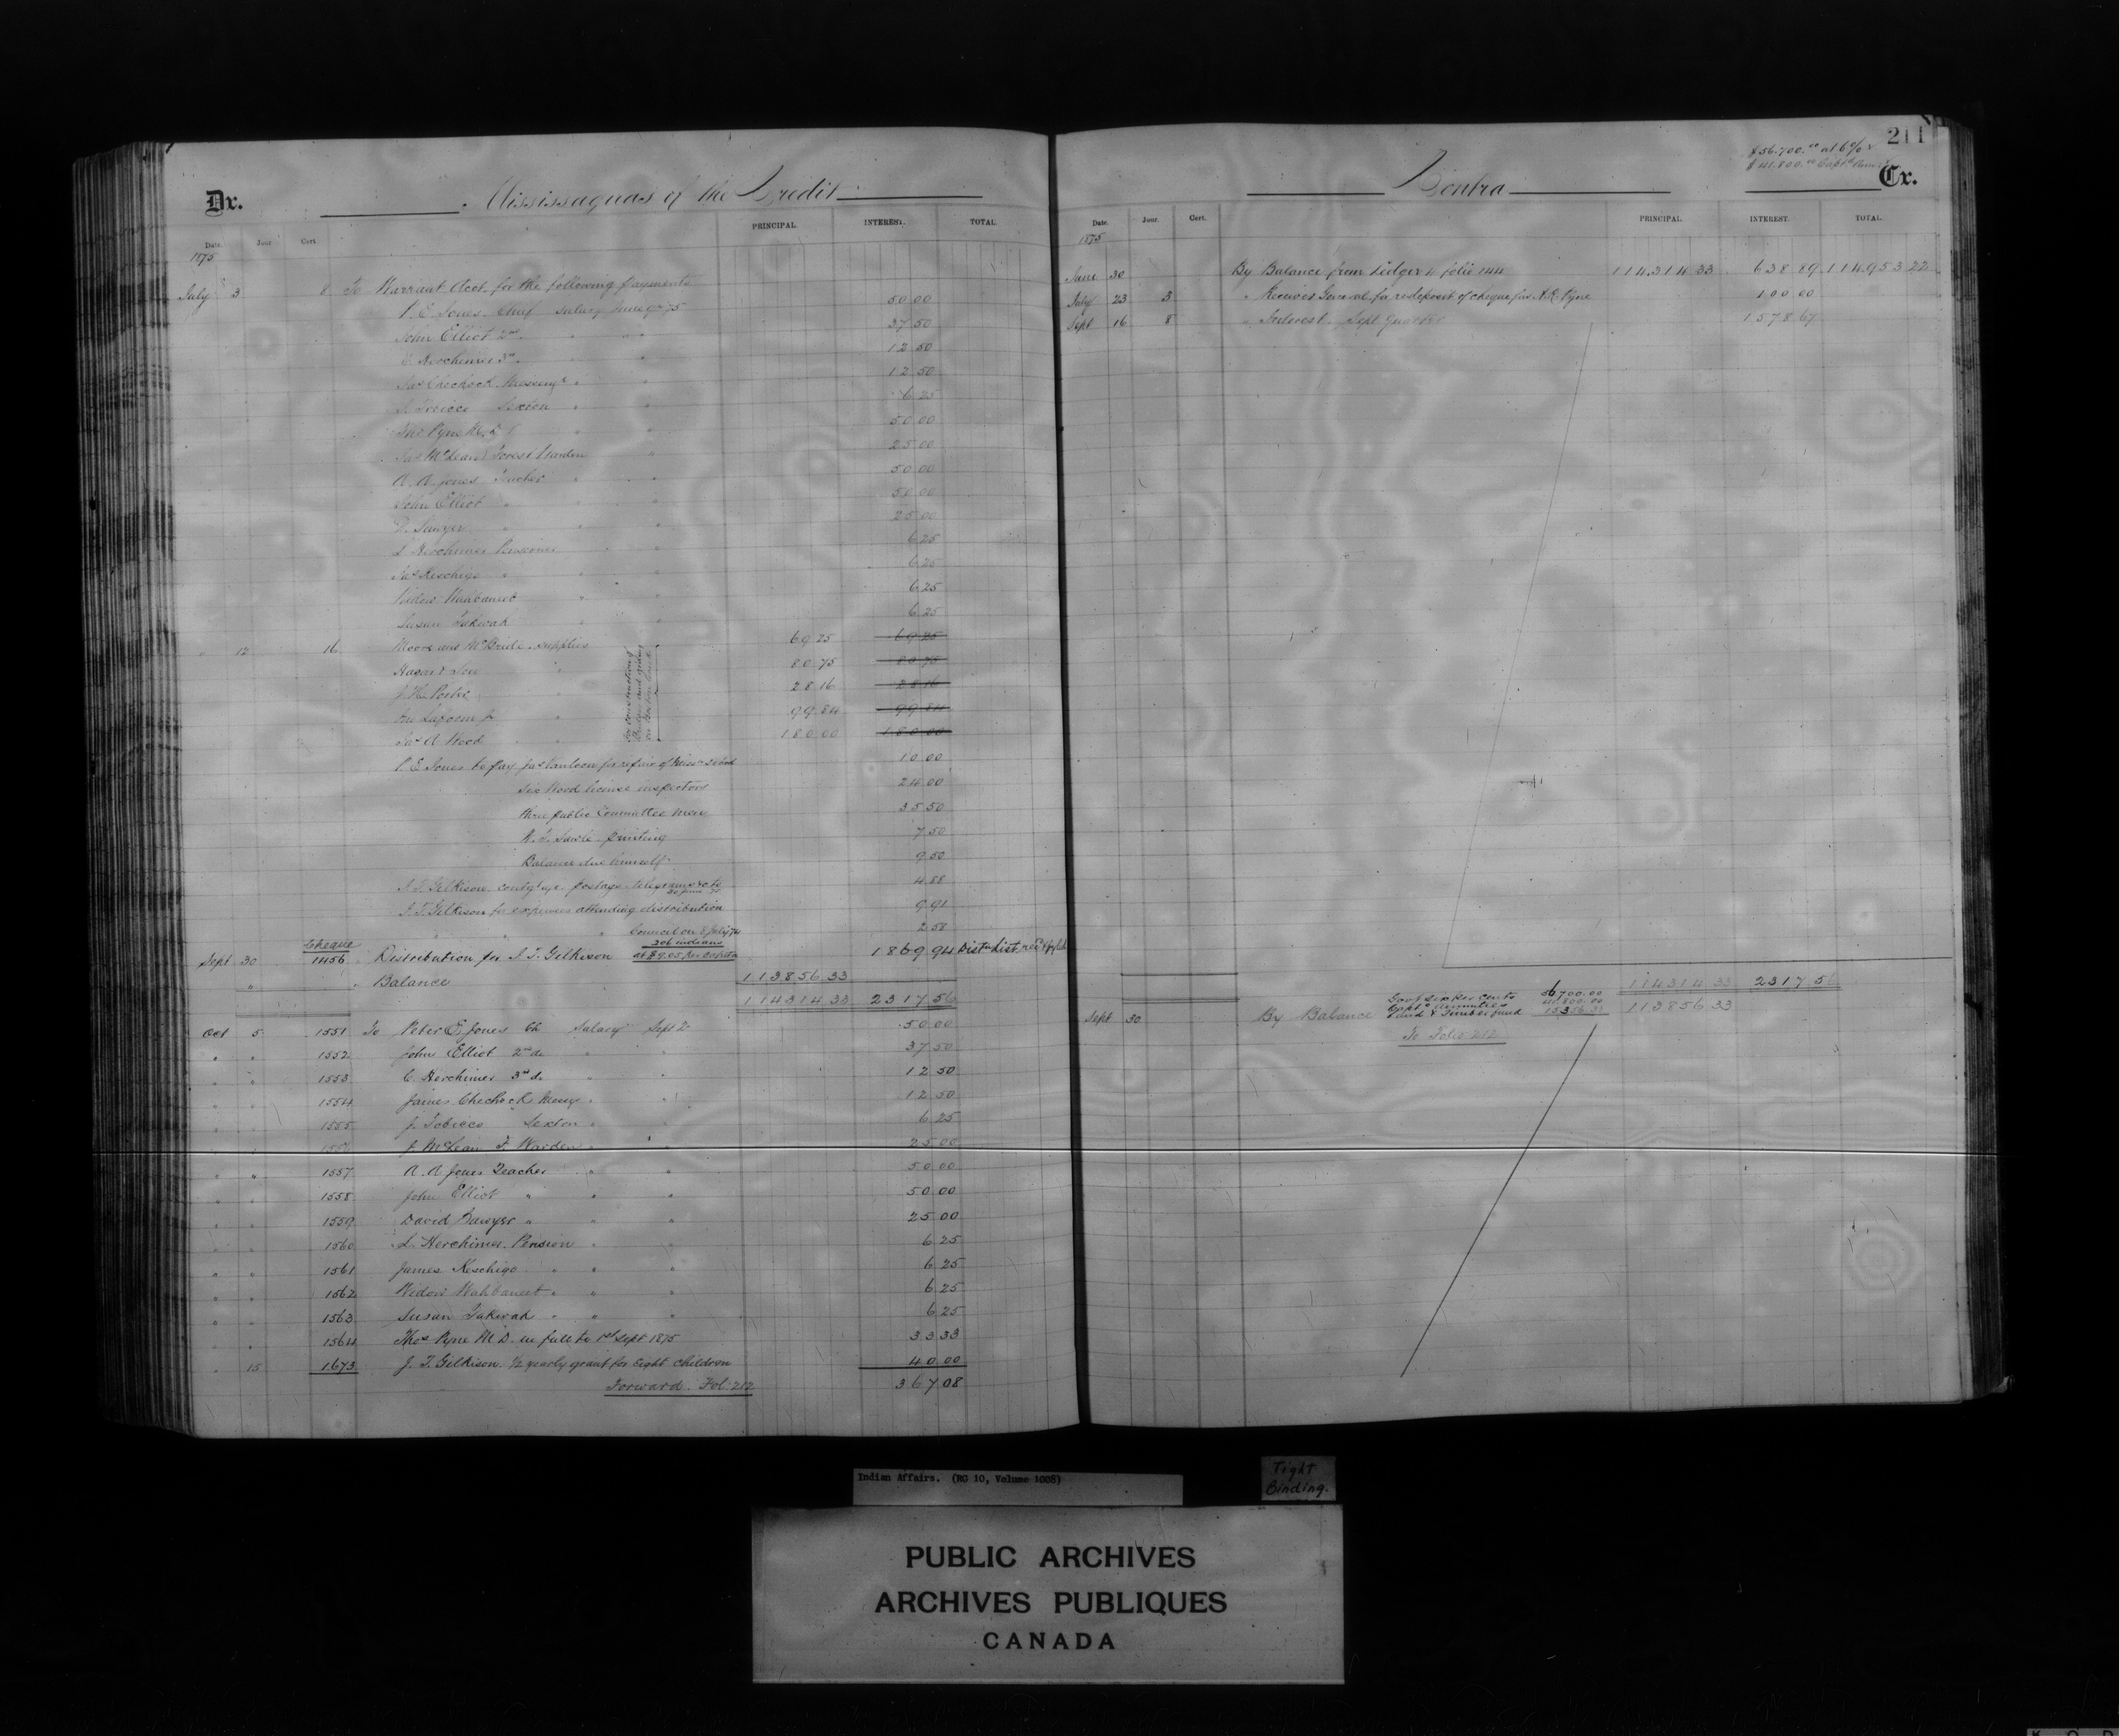 Dr. Mississaguas of the Credit
Date. Jour. Cert. PRINCIPAL. INTEREST. TOTAL.
1875
July 3 8 To Warrant Acct. for the following payments
P. E. Jones Chief Salary June qr 75 50 00
John Elliot 2nd " " 37 50
C. Herchimer 3rd " 12 50
Jas Chechock Messengr " " 12 50
J. Tobicco Sexton " " 6 25
Thos Pyne M.D. " 50 00
Jas McLean Forest Warden " 25 00
A. A. Jones Teacher " " 50 00
John Elliot " " 50 00
D. Sawyer " " " 25 00
L Herchimer Pensioner " 6 25
Jas Keschigo " " 6 25
Widow Wahbaneet " " 6 25
Susan Takwah " 6 25
" 12 16 Moore and McBride supplies 69 25 69 25
Hagar & Son " 80 75 80 75
J. H. Porter " 28 16 28 16
Laform jr " 99 84 99 84
Jas A Wood " 180 00 180 00
for construction of
on
P. E. Jones to pay Jas Vanloon for repair of School 10 00
Six Wood license inspectors 24 00
three public Committee men 35 50
printing 7 50
Balance due himself 9 50
J. T. Gilkison postage telegrams &c to 30 June 75 4 88
J. T. Gilkison for expenses attending distribution 9 91
" " " Council on 8 July 74 2 58
Cheque 206 indians
Sept 30 1456 Distribution for J. T. Gilkison at $9.05 per capita 1869 94 Distn List
" " Balance 113856 33
114314 33 2317 56
Oct 5 1551 To Peter E. Jones Ch Salary Sept 2 50 00
" " 1552 John Elliot 2nd do " " 37 50
" " 1553 C. Herchimer 3rd do " " 12 50
" " 1554 James Chechock Messgr " " 12 50
" " 1555 J. Tobicco Sexton " " 6 25
" " 1556 J. McLean F. Warden " " 25 00
" " 1557 A. A Jones Teacher " " 50 00
" " 1558 John Elliot " " " 50 00
" " 1559 David Sawyer " " " 25 00
" " 1560 L. Herchimer Pension " " 6 25
" " 1561 James Keschigo " " " 6 25
" " 1562 Widow Wahbaneet " " " 6 25
" " 1563 Susan Takwah " " " 6 25
" " 1564 Thos Pyne M.D. in full to 1st Sept 1875 33 33
" 15 1673 J. T. Gilkison ½ yearly grant for Eight children 40 00
Forward Fol: 212 367 08
211
$56.700.00 at 6% ✓
$41.800.00 Capt
Contra Cr.
Date. Jour. Cert. PRINCIPAL. INTEREST. TOTAL.
1875
June 30 By Balance from Ledger 4 folio 144 114314 33 638 89 114953 22
July 23 3 " Receiver General for redeposit of cheque fav. A.R. Pyne 100 00
Sept 16 8 " Interest Sept Quarter 1578 67
114314 33 2317 56
Sept 30 By Balance 113856 33
Govt six per cents 56700.00
Capt annuities 41800.00
Land & Timber fund 15356.33
To Folio 212
Indian Affairs. (RG 10, Volume 1008)
Tight
Binding.
PUBLIC ARCHIVES
ARCHIVES PUBLIQUES
CANADA